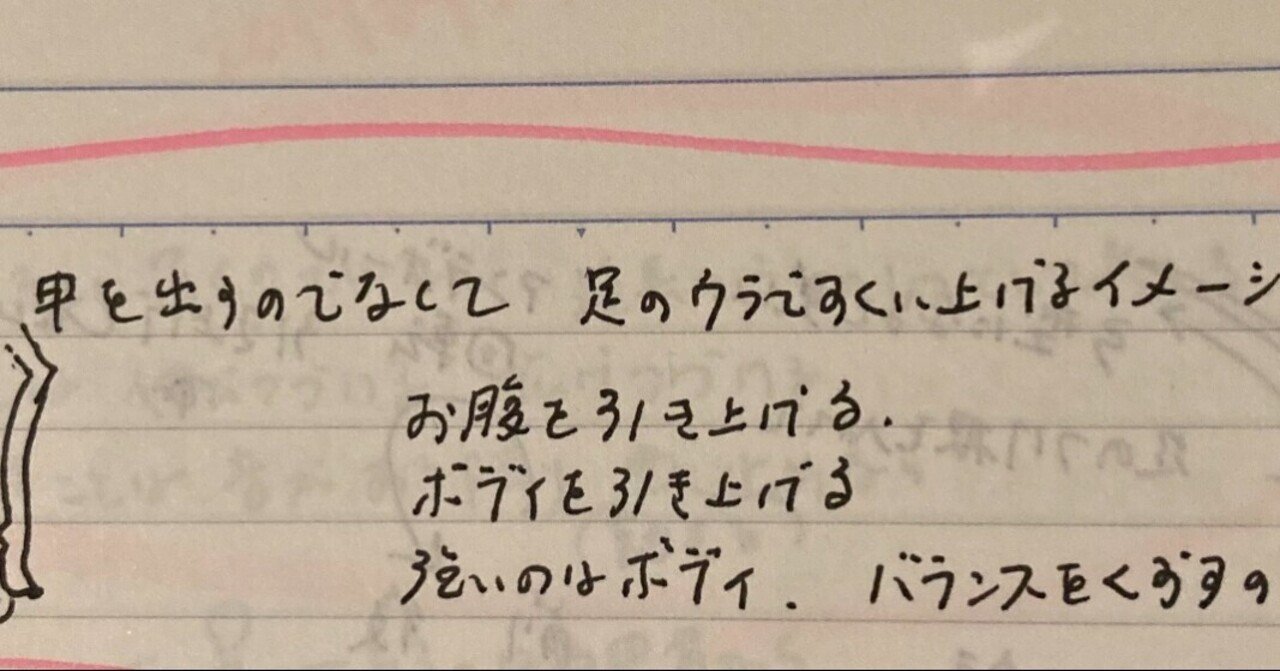 甲を出すのでなくて 足のウラですくい上げるイメージ
お腹を引き上げる.
ボディを引き上げる
強いのはボディ. バランスをくずすの